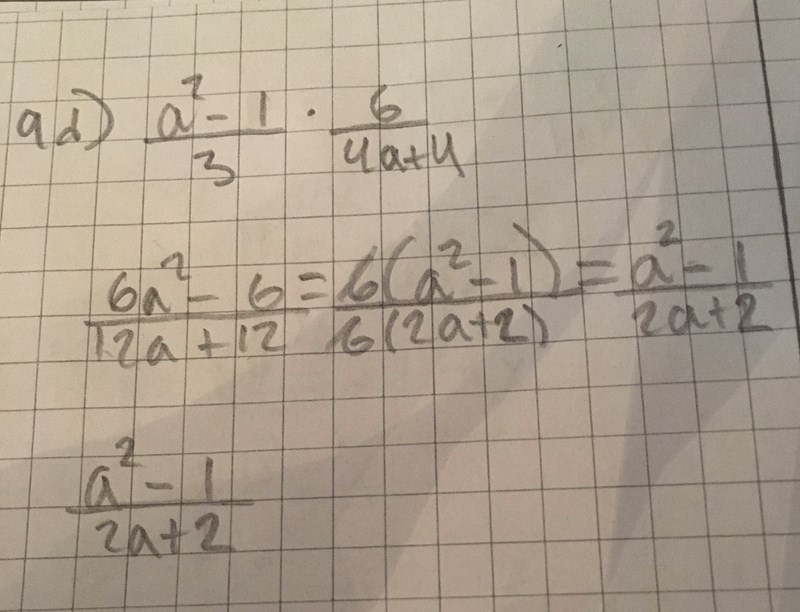 9d) (a² - 1)/3 · 6/(4a+4)
(6a² - 6)/(12a + 12) = 6(a² - 1)/6(2a+2) = (a² - 1)/(2a+2)
(a² - 1)/(2a+2)